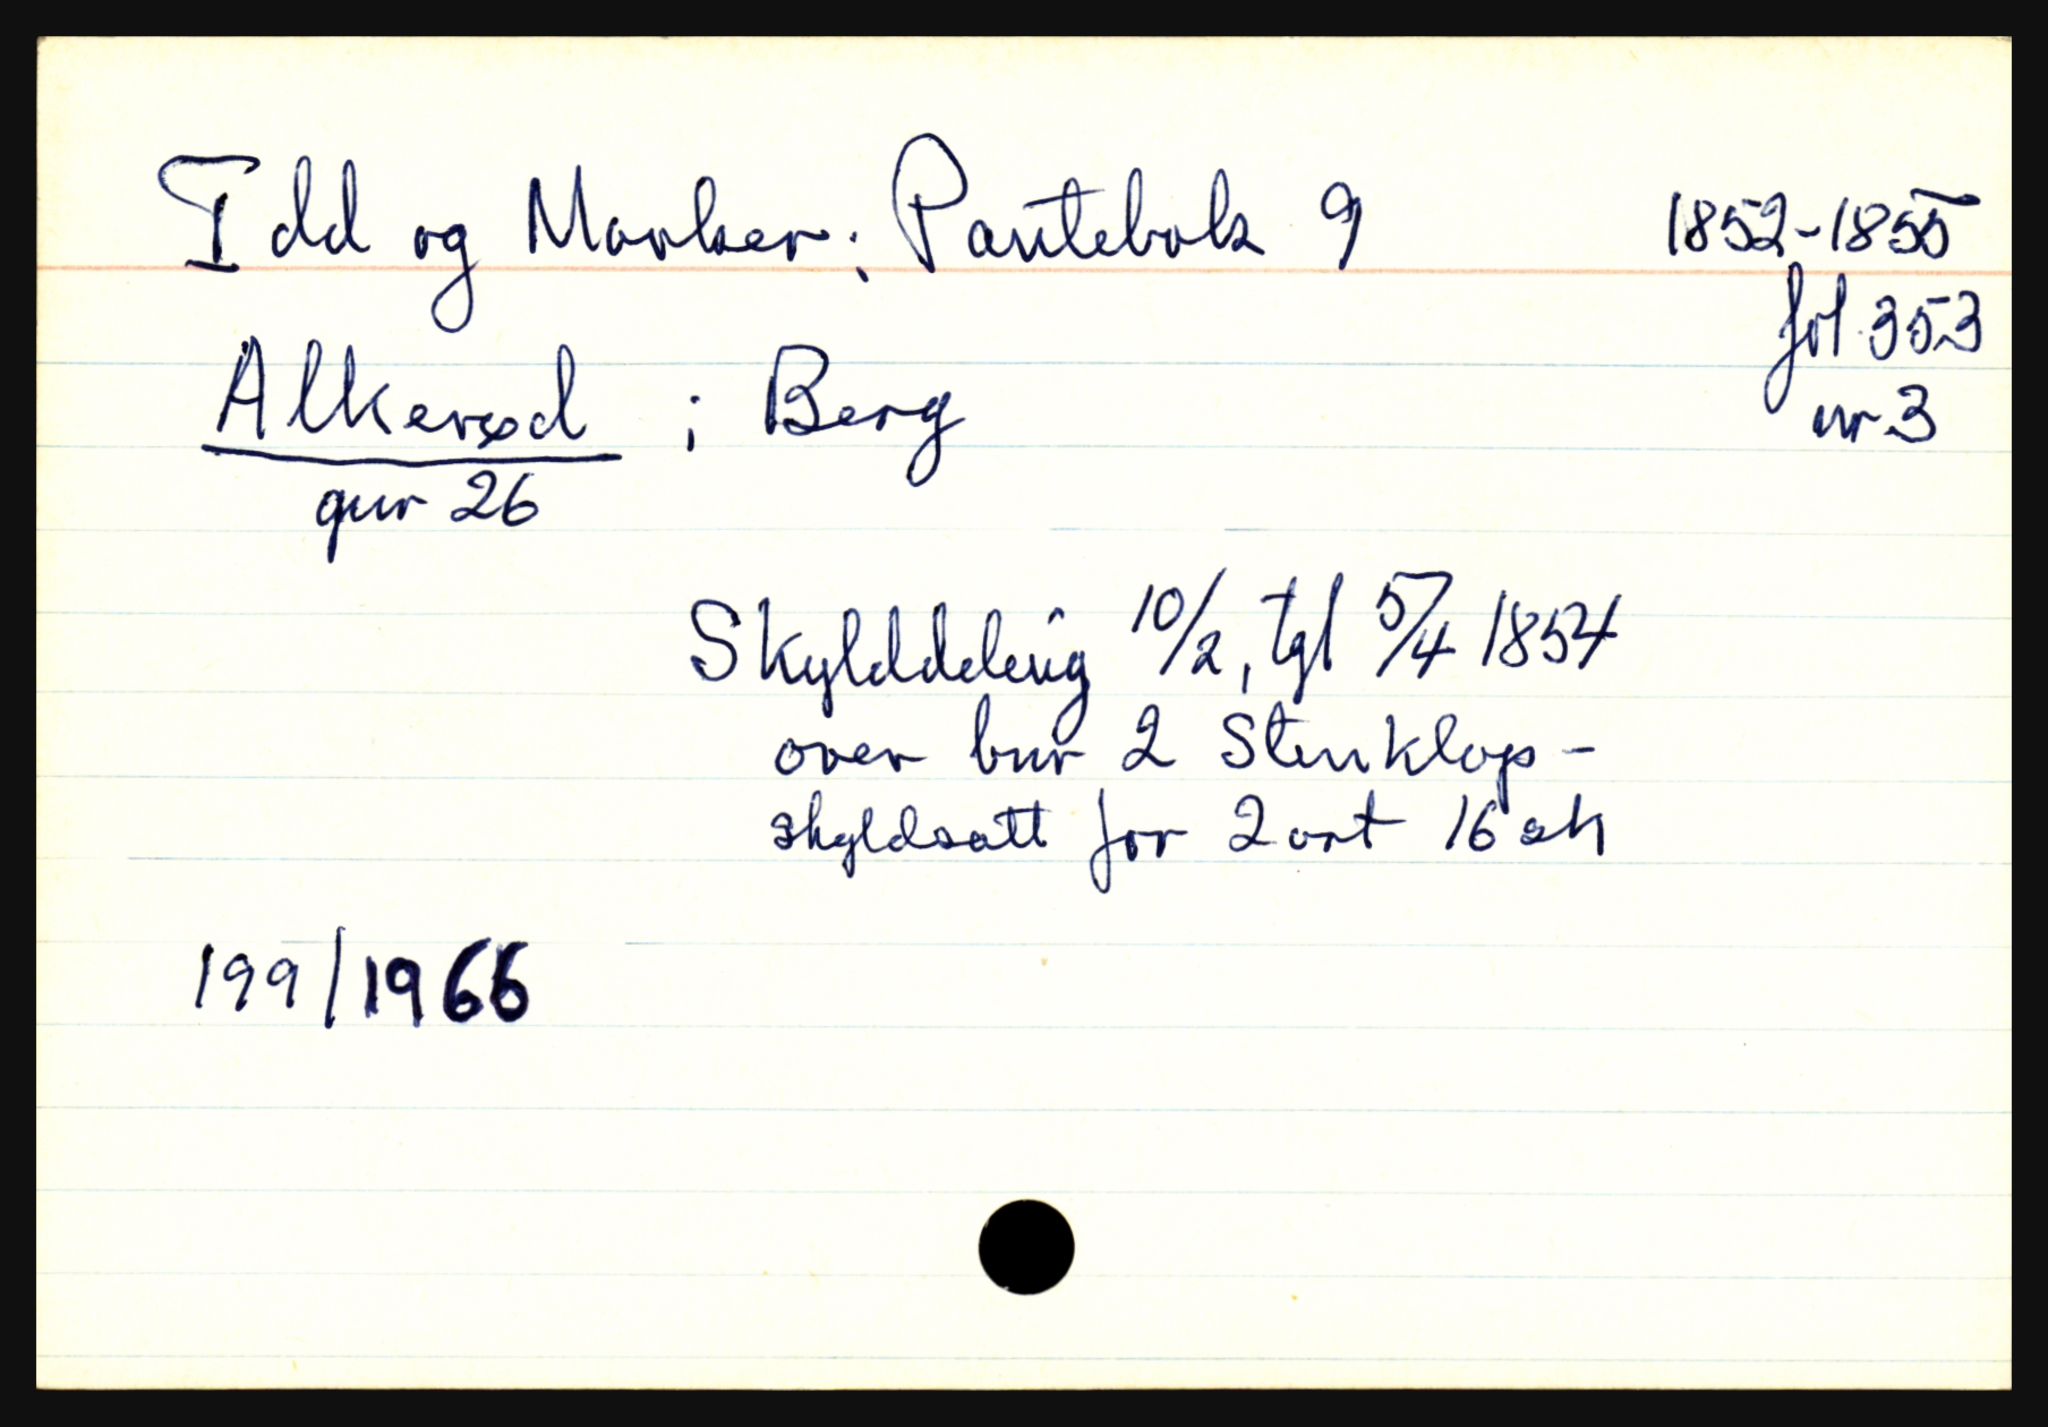 Idd og Marker; Pantebok 9 1852-1855
fol 353
Alkerød i Berg nr 3
gnr 26
Skylddeling 10/2, tgl 5/4 1854
over bnr 2 Stenklop-
skyldsatt for 2 ort 16 sk
199/1966